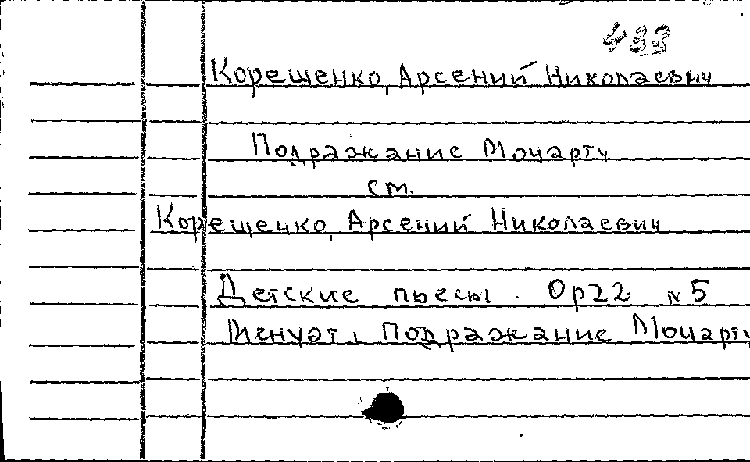 433
Корещенко, Арсений Николаевич
Подражание Моцарту
см.
Корещенко, Арсений Николаевич
Детские пьесы. Op22 № 5
Менуэт. Подражание Моцарту